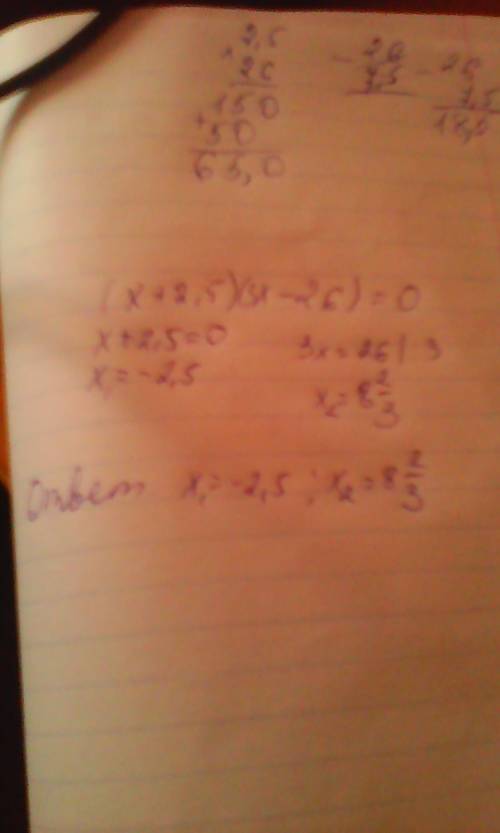 2,5
× 26
150
+ 50
65,0
- 26
2,5
- 26
18,5
(x+2,5)(3x-26)=0
x+2,5=0
x₁=-2,5
3x=26 | 3
x₂=8 2/3
Ответ x₁=-2,5 ; x₂=8 2/3